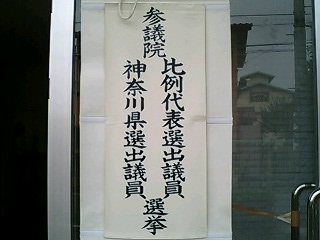 参議院
比例代表選出議員
神奈川県選出議員
選挙